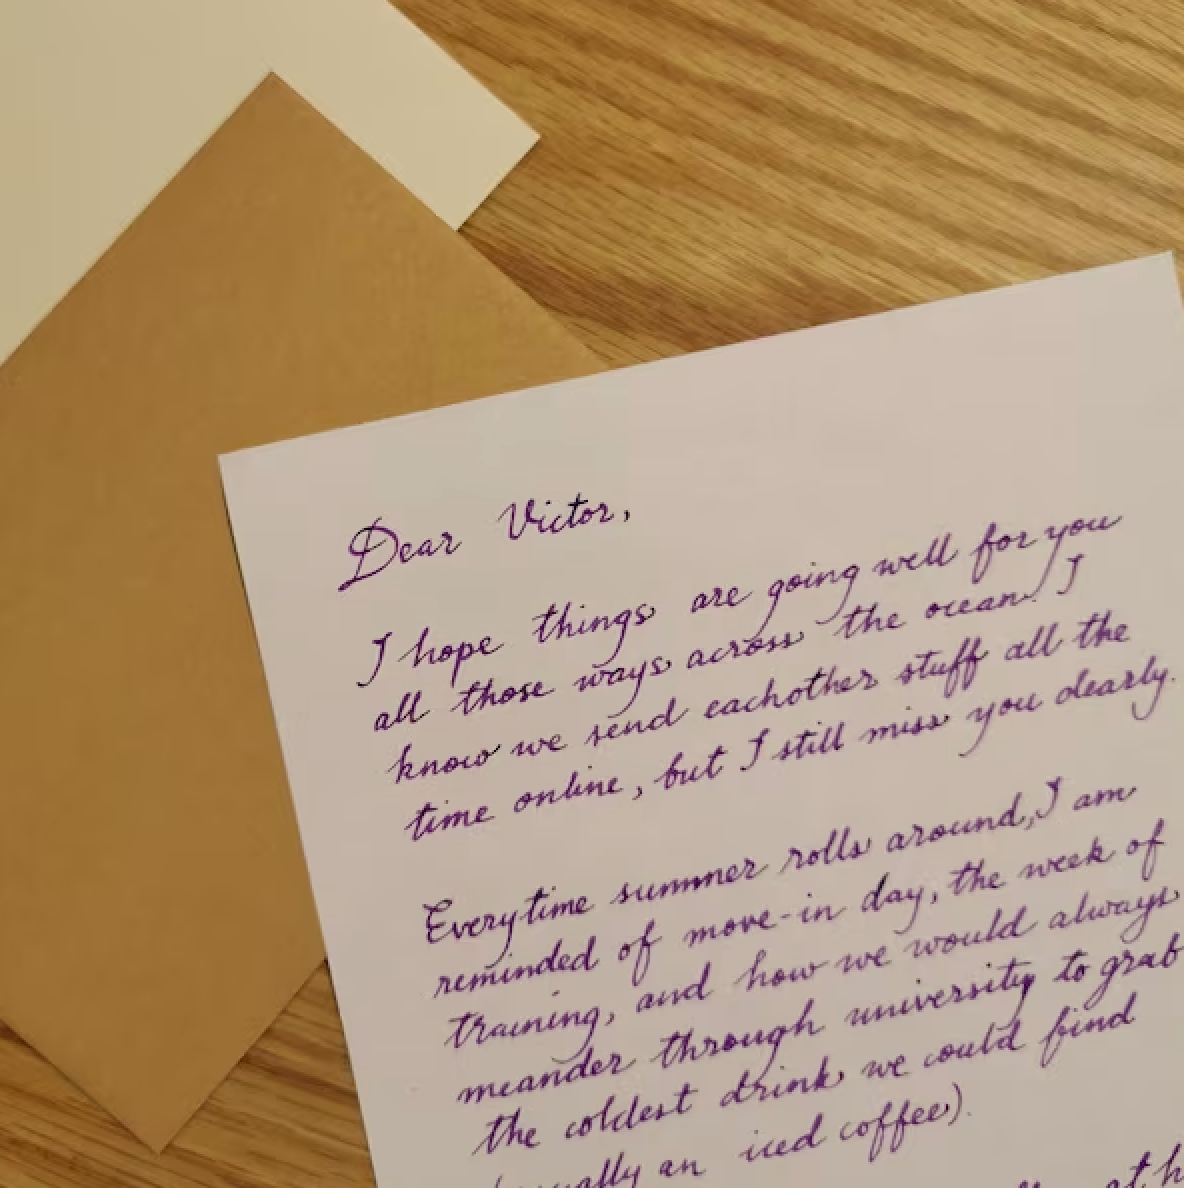 Dear Victor,
I hope things are going well for you
all those ways across the ocean. I
know we send eachother stuff all the
time online, but I still miss you dearly.
Everytime summer rolls around, I am
reminded of move-in day, the week of
training, and how we would always
meander through university to grab
the coldest drink we could find
an iced coffee).
at